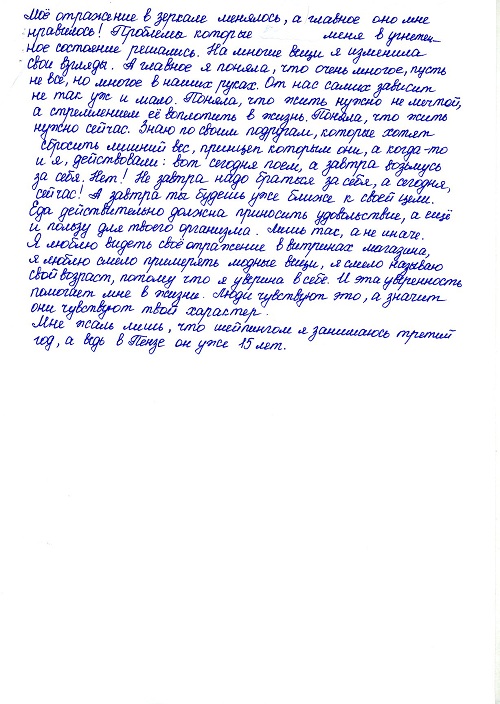 Моё отражение в зеркале менялось, а главное оно мне
нравилось! Проблемы которые меня в угнетен-
ное состояние решались. На многие вещи я изменила
свои взгляды. А главное я поняла, что очень многое, пусть
не все, но многое в наших руках. От нас самих зависит
не так уж и мало. Поняла, что жить нужно не мечтой,
а стремлением её воплотить в жизнь. Поняла, что жить
нужно сейчас. Знаю по своим подругам, которые хотят
сбросить лишний вес, принцеп которым они, а когда-то
и я, действовали: вот сегодня поем, а завтра возьмусь
за себя. Нет! Не завтра надо браться за себя, а сегодня,
сейчас! А завтра ты будешь уже ближе к своей цели.
Еда действительно должна приносить удовольствие, а ещё
и пользу для твоего организма. Лишь так, а не иначе.
Я люблю видеть своё отражение в витринах магазина,
я люблю смело примерять модные вещи, я смело называю
свой возраст, потому что я уверена в себе. И эта уверенность
помогает мне в жизни. Люди чувствуют это, а значит
они чувствуют твой характер.
Мне жаль лишь, что шейпингом я занимаюсь третий
год, а ведь в Пензе он уже 15 лет.